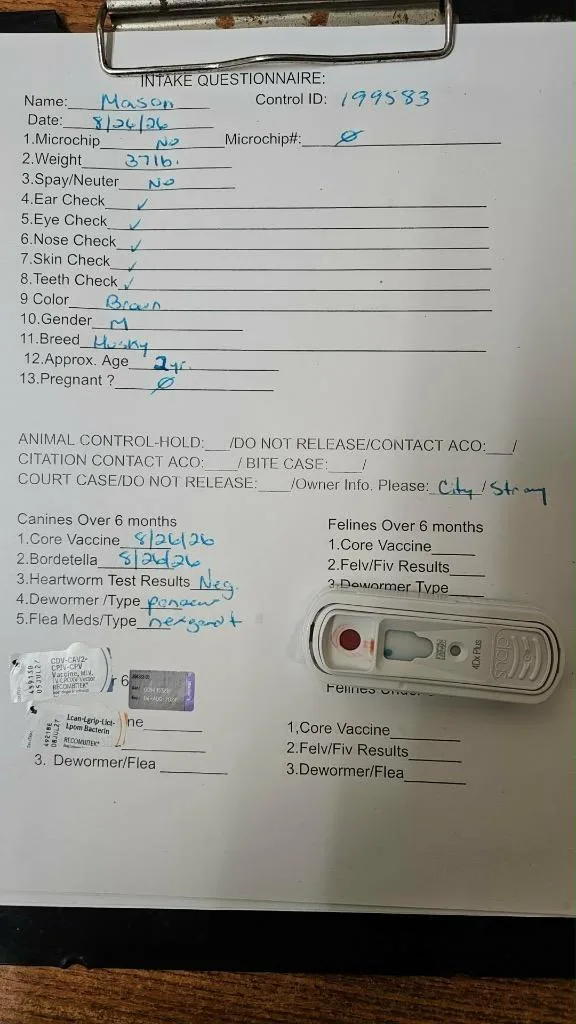 INTAKE QUESTIONNAIRE:
Name: Mason Control ID: 199583
Date: 8/26/26
1.Microchip No Microchip#: Ø
2.Weight 37lb.
3.Spay/Neuter No
4.Ear Check ✓
5.Eye Check ✓
6.Nose Check ✓
7.Skin Check ✓
8.Teeth Check ✓
9 Color Brown
10.Gender M
11.Breed Husky
12.Approx. Age 2yr.
13.Pregnant ? Ø
ANIMAL CONTROL-HOLD:___/DO NOT RELEASE/CONTACT ACO:___/
CITATION CONTACT ACO:____/ BITE CASE:____/
COURT CASE/DO NOT RELEASE:____/Owner Info. Please: City / Stray
Canines Over 6 months
1.Core Vaccine 8/26/26
2.Bordetella 8/26/26
3.Heartworm Test Results Neg.
4.Dewormer /Type panacur
5.Flea Meds/Type nexgard +
Felines Over 6 months
1.Core Vaccine
2.Felv/Fiv Results
3.Dewormer Type
4Dx Plus
CDV-CAV2-
CPIV-CPV
Vaccine, MLV,
RECOMBITEK®
05JUL27
r 6
Lcan-Lgrip-Lict-
Lpom Bacterin
RECOMBITEK®
08JUL27
ne
3. Dewormer/Flea
Felines
1,Core Vaccine
2.Felv/Fiv Results
3.Dewormer/Flea